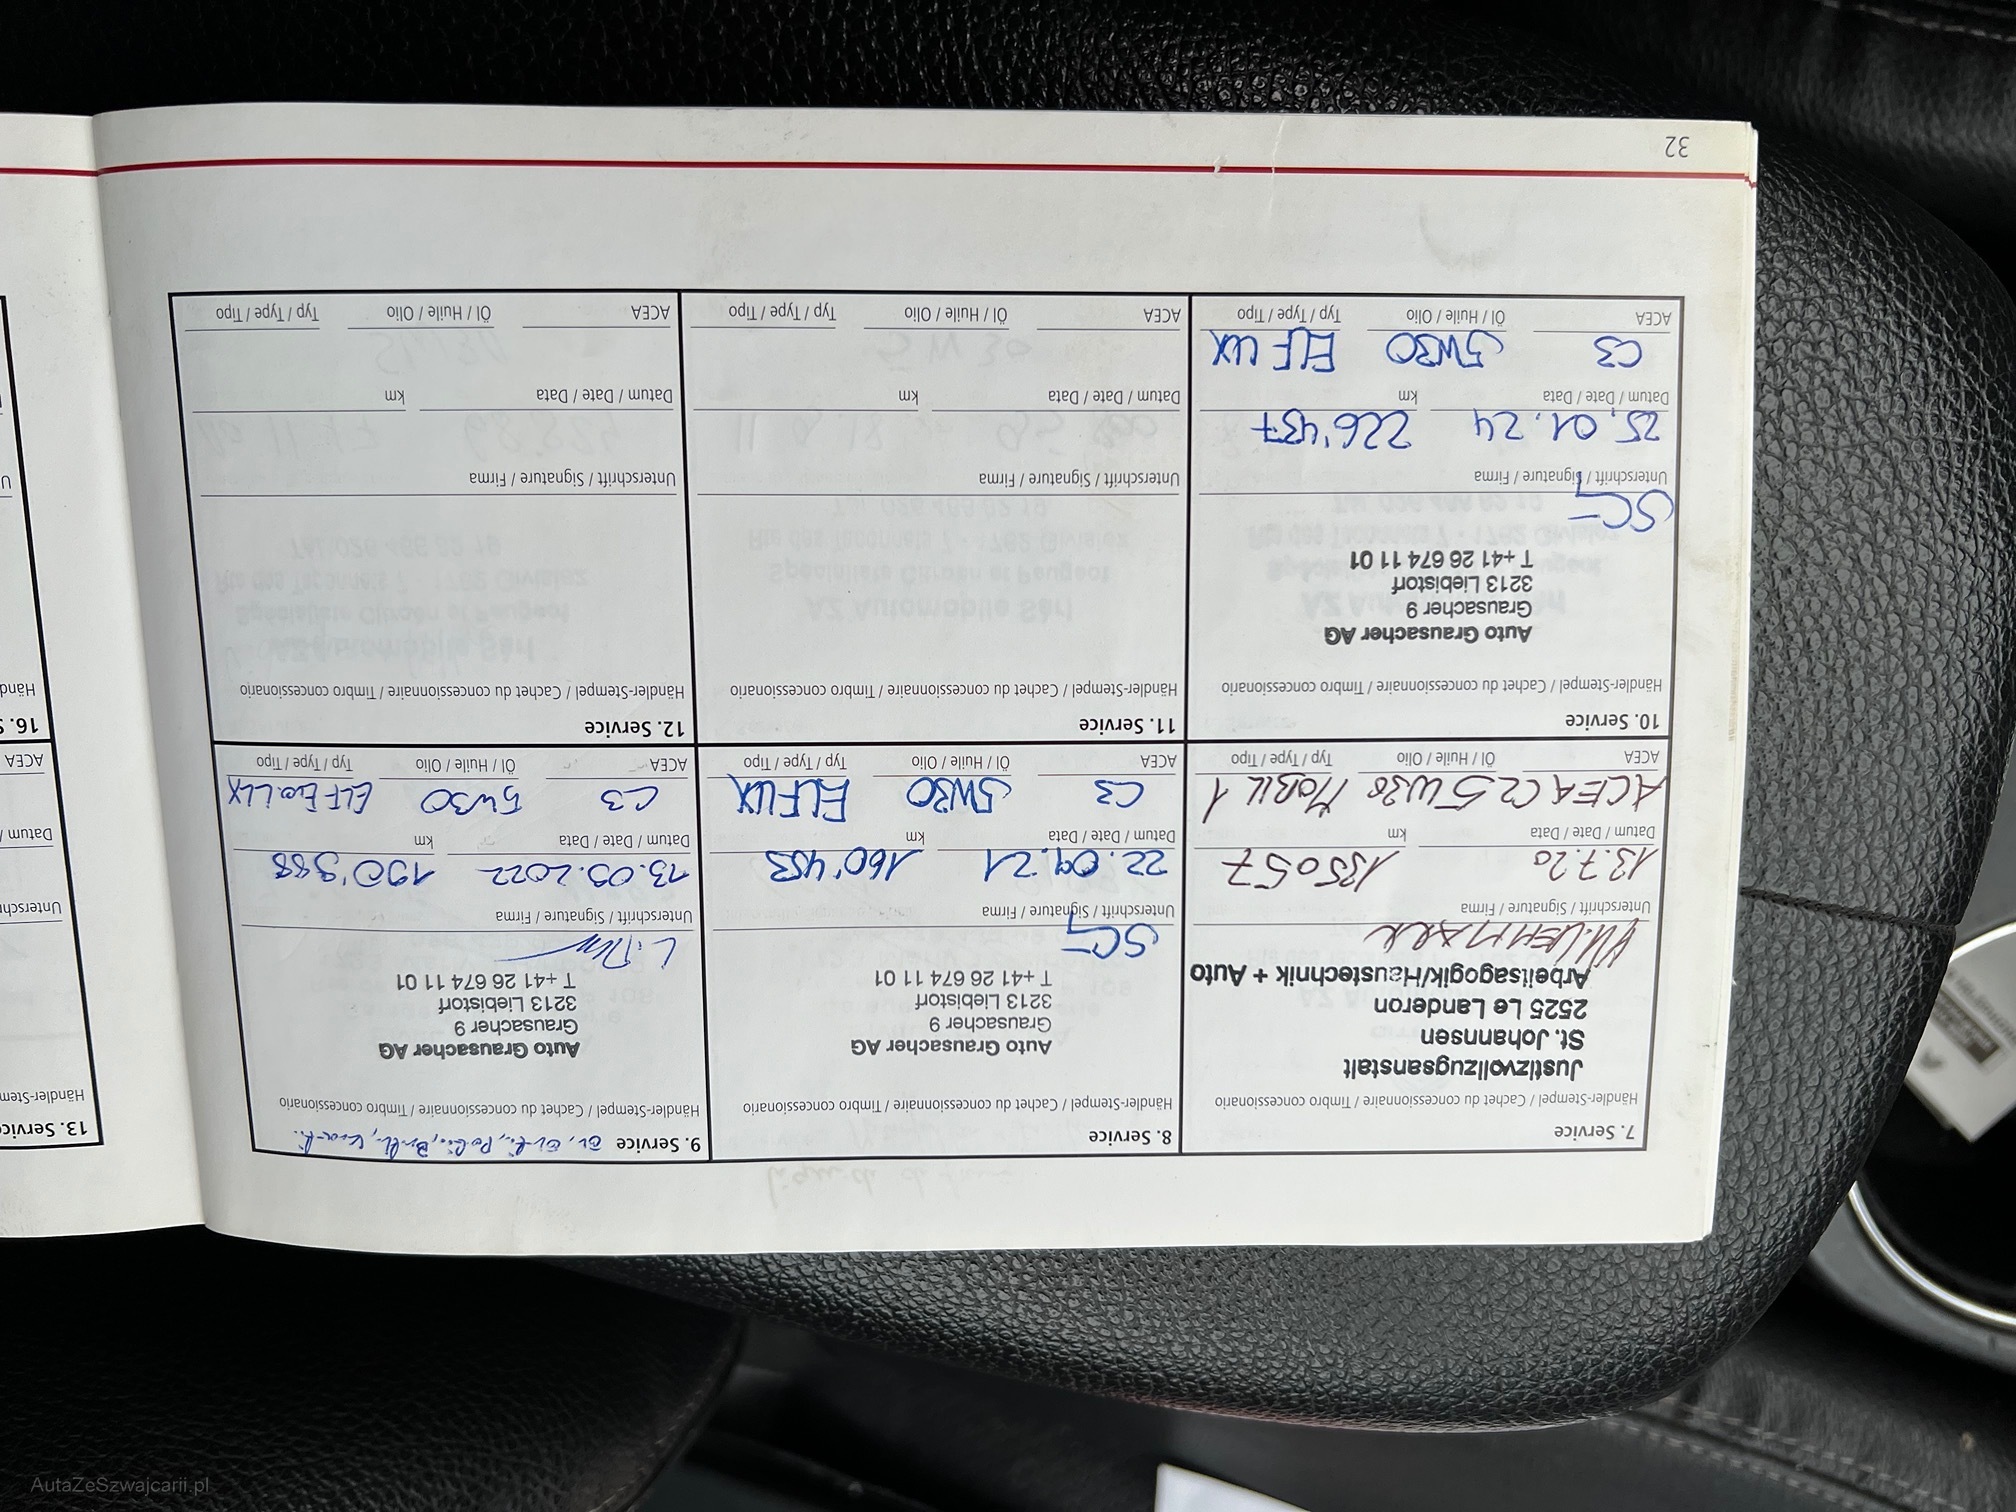 7. Service
Händler-Stempel / Cachet du concessionnaire / Timbro concessionario
Justizvollzugsanstalt
St. Johannsen
2525 Le Landeron
Arbeitsagogik/Haustechnik + Auto
Unterschrift / Signature / Firma
13.7.20 135057
Datum / Date / Data km
ACEA C2 5W30 MOBIL 1
ACEA Öl / Huile / Olio Typ / Type / Tipo
8. Service
Händler-Stempel / Cachet du concessionnaire / Timbro concessionario
Auto Grausacher AG
Grausacher 9
3213 Liebistorf
T +41 26 674 11 01
Unterschrift / Signature / Firma
22.04.21 160'453
Datum / Date / Data km
C3 5W30 ELF LLX
ACEA Öl / Huile / Olio Typ / Type / Tipo
9. Service
Händler-Stempel / Cachet du concessionnaire / Timbro concessionario
Auto Grausacher AG
Grausacher 9
3213 Liebistorf
T +41 26 674 11 01
Unterschrift / Signature / Firma
190'988
Datum / Date / Data km
C3 5W30 ELF Evo.LLX
ACEA Öl / Huile / Olio Typ / Type / Tipo
10. Service
Händler-Stempel / Cachet du concessionnaire / Timbro concessionario
Auto Grausacher AG
Grausacher 9
3213 Liebistorf
T +41 26 674 11 01
Unterschrift / Signature / Firma
25.01.24 226'437
Datum / Date / Data km
C3 5W30 ELF LLX
ACEA Öl / Huile / Olio Typ / Type / Tipo
11. Service
Händler-Stempel / Cachet du concessionnaire / Timbro concessionario
Unterschrift / Signature / Firma
Datum / Date / Data km
ACEA Öl / Huile / Olio Typ / Type / Tipo
12. Service
Händler-Stempel / Cachet du concessionnaire / Timbro concessionario
Unterschrift / Signature / Firma
Datum / Date / Data km
ACEA Öl / Huile / Olio Typ / Type / Tipo
32
13. Service
Händler-Stem
Unterschr
Datum /
ACEA
16. S
Händ
AutaZeSzwajcarii.pl